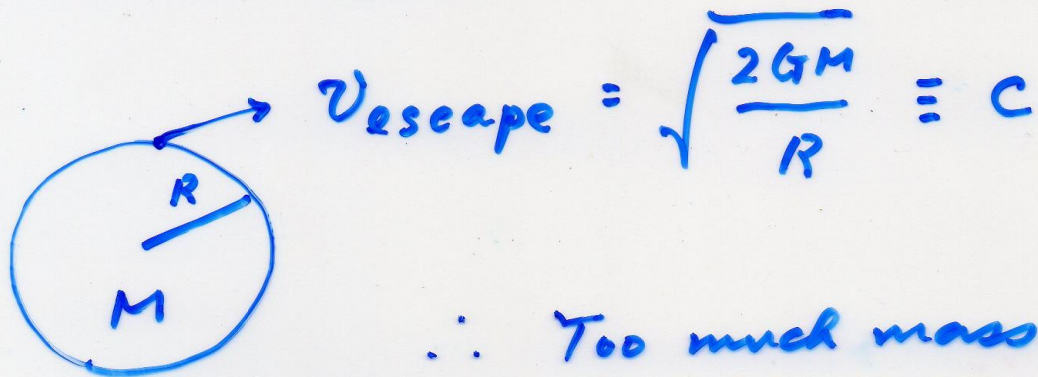 v_escape = √(2GM/R) ≡ C
R
M
∴ Too much mass